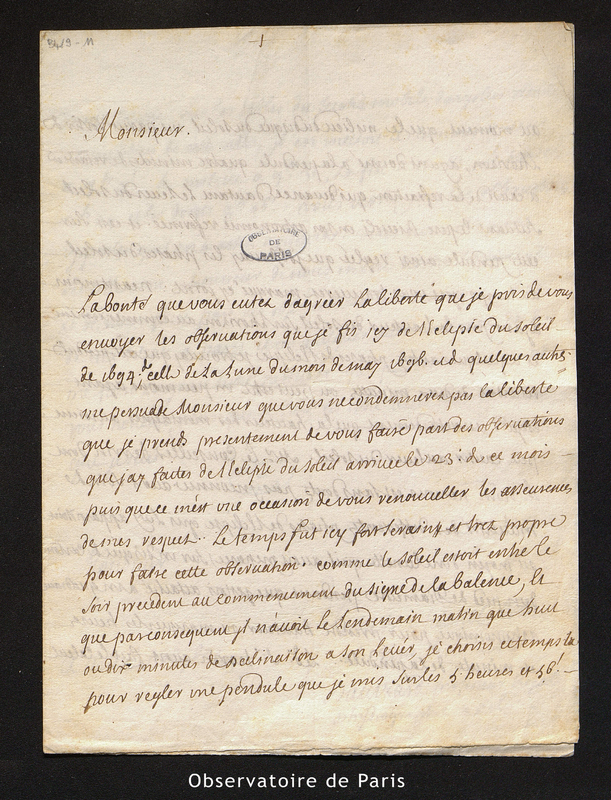 B4/9-11
1
Monsieur.
OBSERVATOIRE
DE
PARIS
La bonté que vous eutez dagreer La liberté que je pris de vous
envoyer les observations que je fis jcy de L'eclipse du Soleil
de 1694, de cell. de La Lune du mois de may 1696. et de quelques autres
me persuade Monsieur que vous ne condemnerez pas la liberté
que je prends presentement de vous faire part des observations
que jay faites de L'eclipse du Soleil arrivee le 23. de ce mois
puis que ce m'est une occasion de vous renouveller les asseurences
de mes respects. Le temps fut jcy fort serain et trez propre
pour faire cette observation. comme le soleil estoit entré le
soir precedent au commencement du signe de la balence, Et
que par consequent jl n'avoit le Lendemain matin que huit
ou dix minutes de declinaison a son Lever, je choisis ce temps la
pour regler une pendule que je mis sur les 5 heures et 58'
Observatoire de Paris